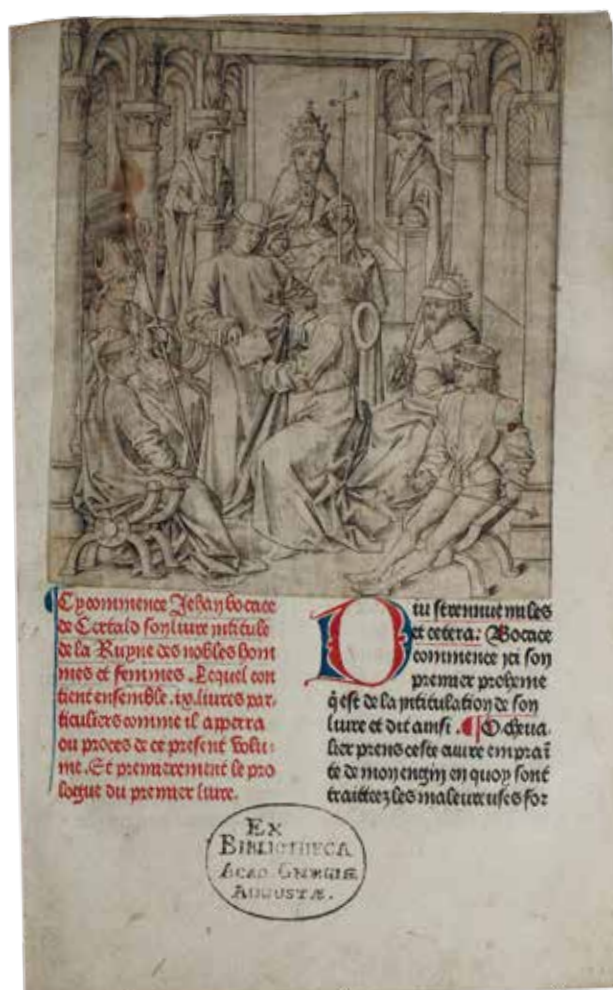 Cy commence Jehan bocace
de Certald son liure intitule
de la Ruyne des nobles hom
mes et femmes. Lequel con
tient ensemble .ix. liures par-
ticuliers comme il apperra
ou proces de ce present volu-
me. Et premierement le pro
logue du premier liure.
Diu strennue miles
et cetera: Bocace
commence icy son
premier proheme
q̃ est de la intitulation de son
liure et dit ainsi. ¶ O cheua-
lier prens ceste œuure emprai̅
te de mon engin en quoy sont
traittiez les maleureuses for
EX
BIBLIOTHECA
ACAD. GEORGIÆ
AUGUSTÆ.